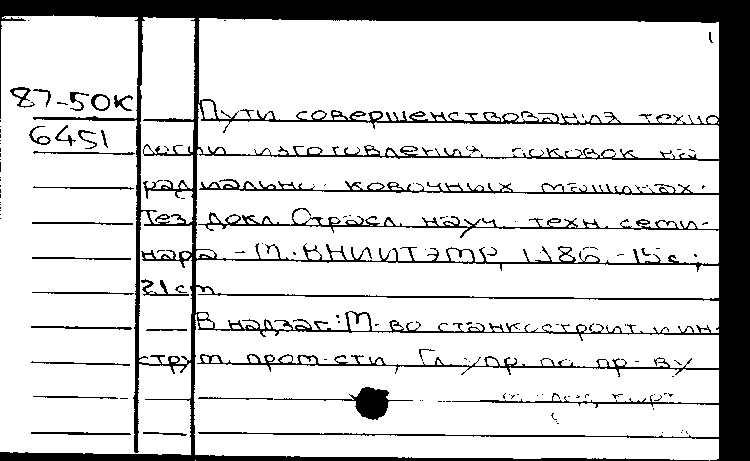 1
87-50К
6451
Пути совершенствования техно
логии изготовления поковок на
радиально-ковочных машинах:
Тез. докл. Отрасл. науч.-техн. семи-
нара. - М.: ВНИИТЭМР, 1986. - 15 с.;
21 см.
В надзаг.: М-во станкостроит. и ин-
струм. пром-сти, Гл. упр. по пр-ву